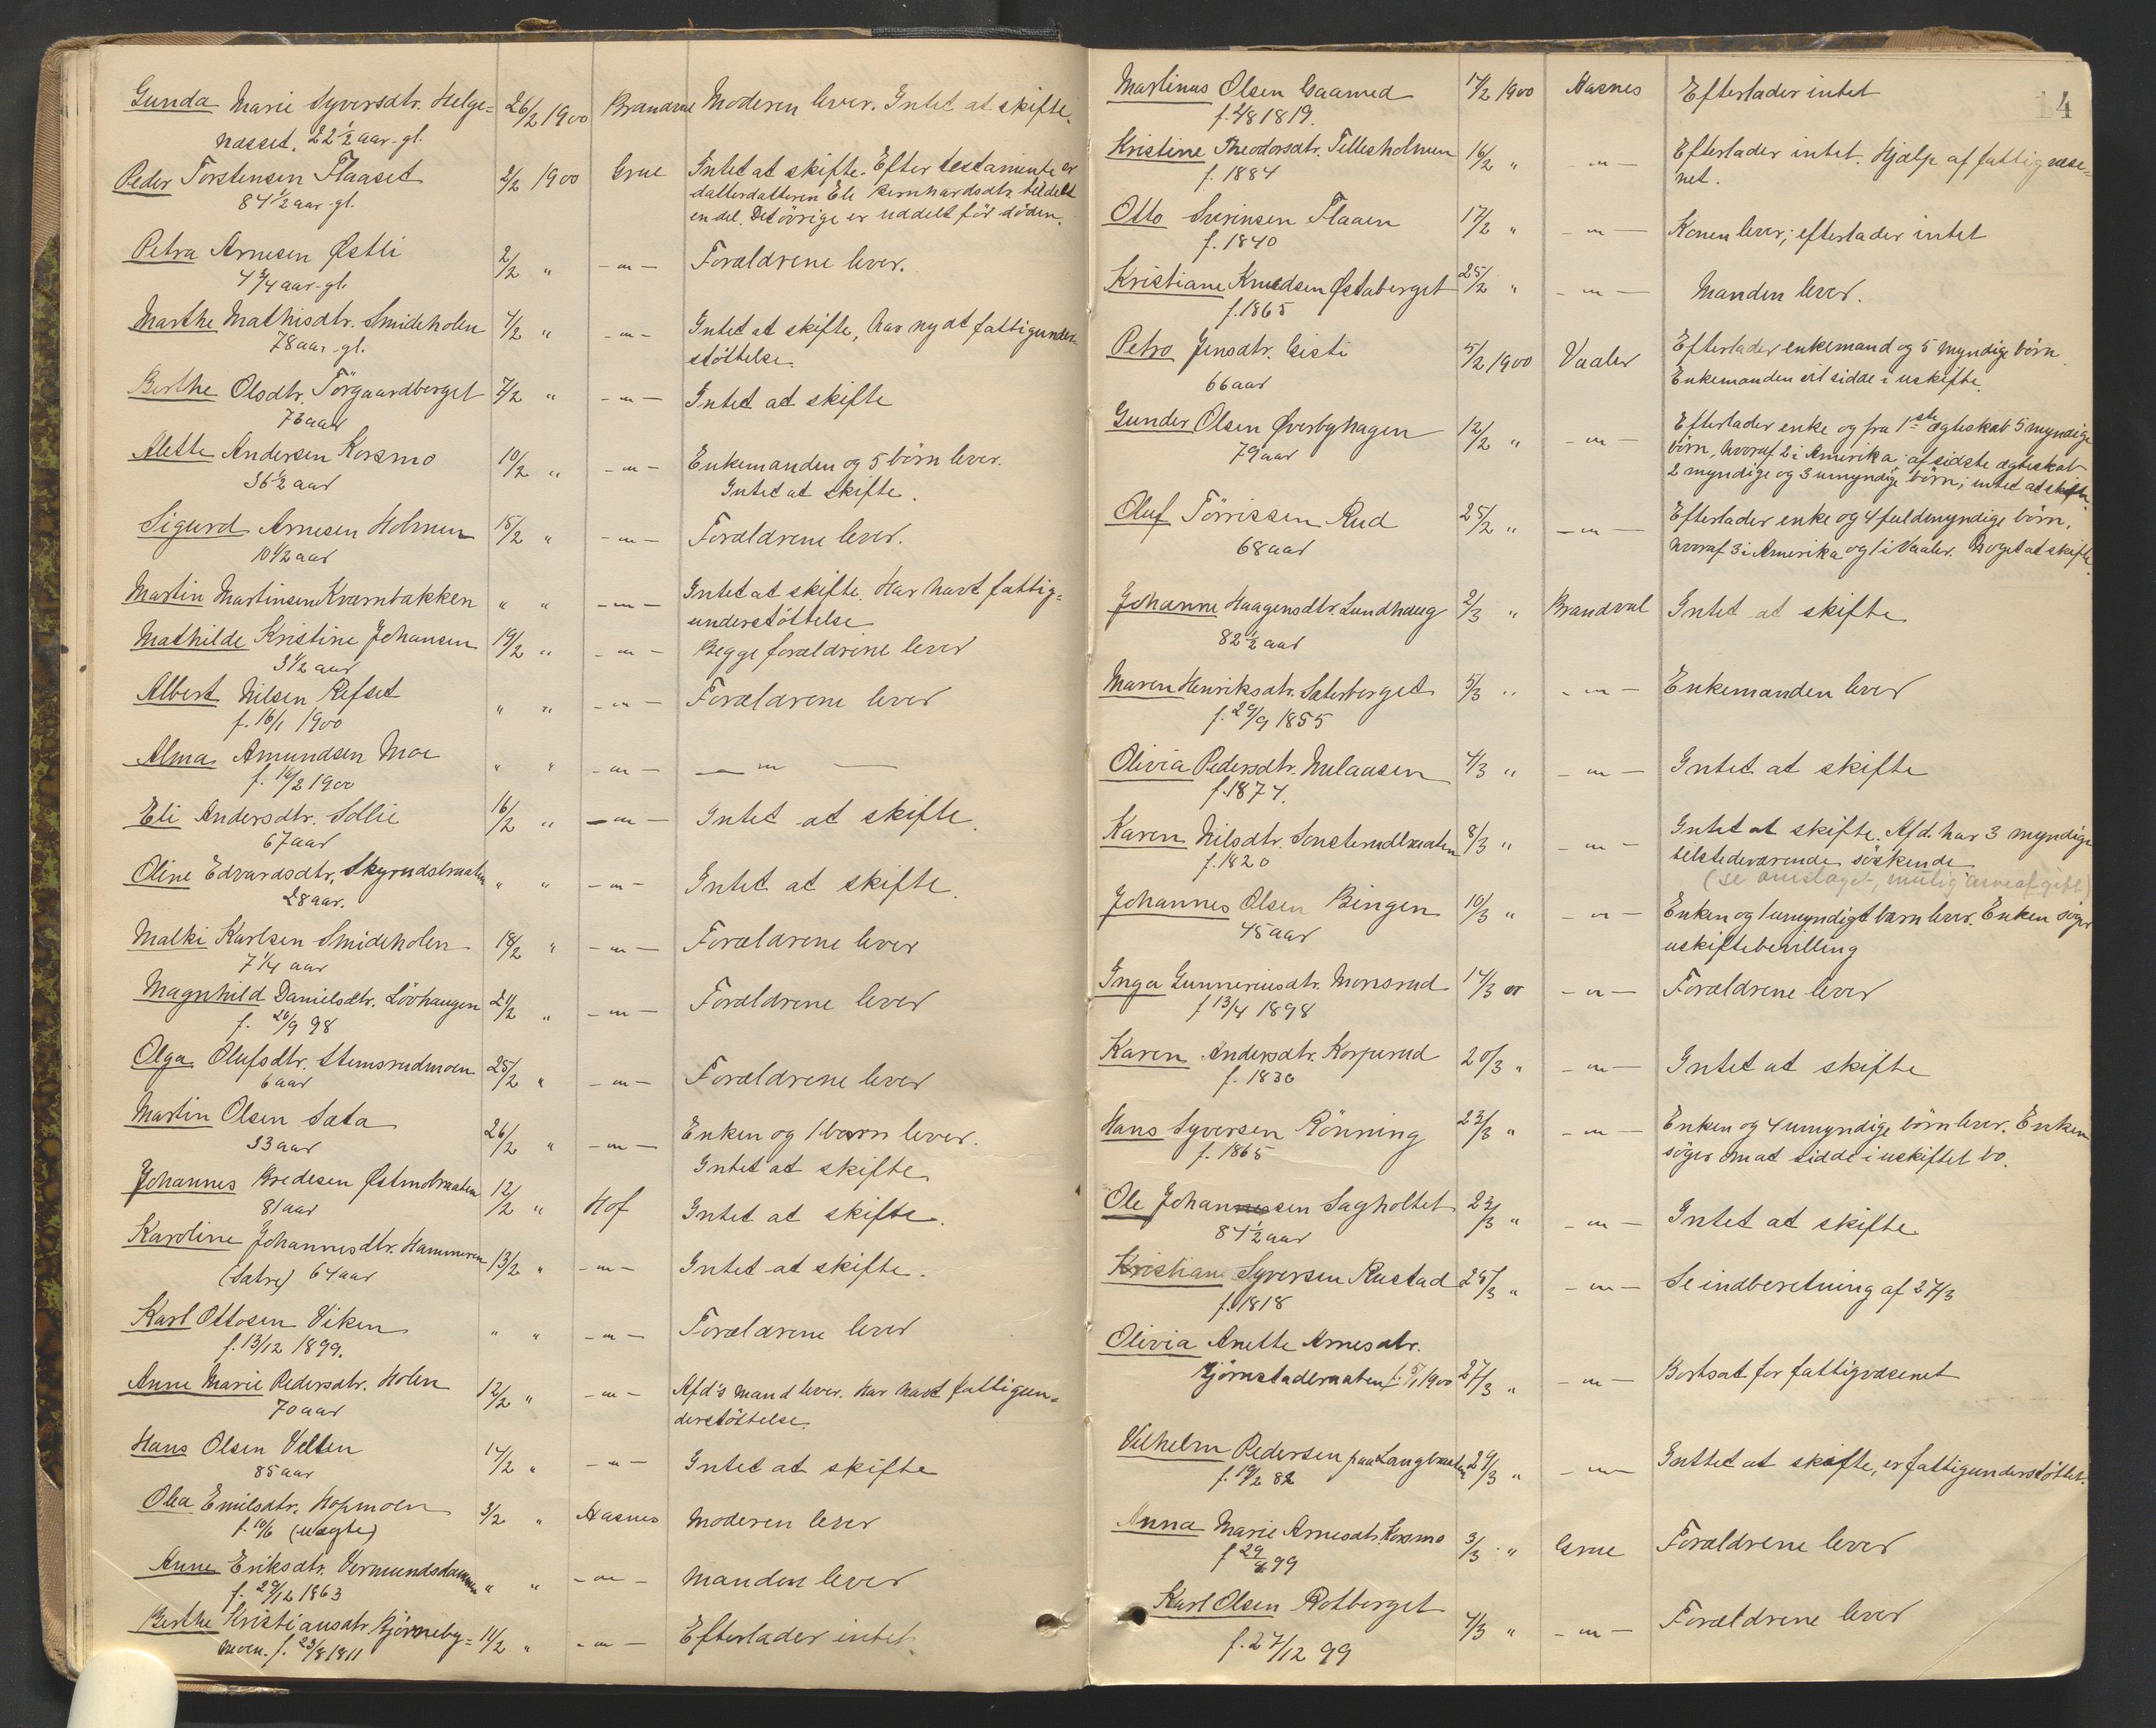 Gunda Marie Syversdtr. Helge= 26/2 1900 Brandval Moderen lever. Intet at skifte.
næsset. 22 1/2 aar gl.
Peder Torstensen Flaaset 2/2 1900 Grue Intet at skifte. Efter testamente er
84 1/2 aar gl. datterdatteren Eli Bernhardsdtr. tildelt
en del. Det øvrige er uddelt før døden.
Petra Arnesen Østli 2/2 " - " - Forældrene lever.
4 3/4 aar gl.
Marthe Mathisdtr. Smideholen 4/2 " - " - Intet at skifte, har nydt fattigunder-
78 aar gl. støttelse.
Berthe Olsdtr. Torgaardberget 7/2 " - " - Intet at skifte
76 aar
Alette Andersen Korsmo 10/2 " - " - Enkemanden og 5 børn lever.
36 1/2 aar Intet at skifte.
Sigurd Arnesen Holmen 15/2 " - " - Forældrene lever.
10 1/2 aar
Martin Martinsen Kværnbakken " " - " - Intet at skifte. Har havt fattig=
understøttelse
Mathilde Kristine Johansen 19/2 " - " - Begge forældrene lever
3 1/2 aar
Albert Nilsen Refset " " - " - Forældrene lever
f. 16/1 1900
Alma Amundsen Moe " " - " - — " —
f. 16/2 1900
Eli Andersdtr. Sollie 16/2 " - " - Intet at skifte.
67 aar
Oline Edvardsdtr. Skyrudsbraaten " " - " - Intet at skifte.
28 aar.
Malki Karlsen Smideholen 18/2 " - " - Forældrene lever
7 1/4 aar
Magnhild Danielsdtr. Løvhaugen 21/2 " - " - Forældrene lever
f. 26/9 98
Olga Olufsdtr. Stemsrudmoen 25/2 " - " - Forældrene lever
6 aar
Martin Olsen Sæta 26/2 " - " - Enken og 1 barn lever.
33 aar Intet at skifte
Johannes Bredesen Østmobraaten 12/2 " Hof Intet at skifte.
81 aar
Karoline Johannesdtr. Hammeren 13/2 " - " - Intet at skifte.
(Sætre) 64 aar
Karl Ottosen Viken " " - " - Forældrene lever
f. 13/12 1899.
Anne Marie Pedersdtr. Holen 12/2 " - " - Afd's mand lever. Har havt fattigun=
70 aar derstøttelse.
Hans Olsen Velten 14/2 " - " - Intet at skifte
85 aar
Olea Emilsdtr. Hopmoen 3/2 " Aasnes Moderen lever
f. 10/6 (uægte)
Anne Eriksdtr. Vermundsdammen " " - " - Manden lever
f. 29/12 1863
Berthe Kristiansdtr. Bjørneby= 11/2 " - " - Efterlader intet.
moen. f. 23/8 1811
14
Martinus Olsen Gaamed 17/2 1900 Aasnes Efterlader intet
f. 4/8 1819.
Kristine Theodorsdtr. Tellesholmen 16/2 " - " - Efterlader intet. Hjælp af fattigvæse=
f. 1884 net.
Otto Sverinsen Flaaen 17/2 " - " - Konen lever; efterlader intet
f. 1840
Kristiane Knudsen Østaberget 25/2 " - " - Manden lever.
f. 1865
Petro Jensdtr. Gisti 5/2 1900 Vaaler Efterlader enkemand og 5 myndige børn
66 aar Enkemanden vil sidde i uskifte.
Gunder Olsen Øverbyhagen 12/2 " - " - Efterlader enke og fra 1ste ægteskab 5 myndige
79 aar børn, hvoraf 2 i Amerika; af sidste ægteskab
2 myndige og 3 umyndige børn; intet at skifte.
Oluf Tørrissen Rud 25/2 " - " - Efterlader enke og 4 fuldmyndige børn,
68 aar hvoraf 3 i Amerika og 1 i Vaaler. Noget at skifte.
Johanne Haagensdtr. Lundhaug 2/3 " Brandval Intet at skifte
82 1/2 aar
Maren Henriksdtr. Sæterberget 5/3 " - " - Enkemanden lever
f. 29/9 1855
Olivia Pedersdtr. Melaasen 4/3 " - " - Intet at skifte
f. 1874.
Karen Nilsdtr. Sonsterudbraaten 8/3 " - " - Intet at skifte. Afd. har 3 myndige
f. 1820 tilstedeværende søskende
(se omslaget, mulig arveafgift)
Johannes Olsen Bingen 10/3 " - " - Enken og 1 umyndigt barn lever. Enken søger
45 aar uskiftebevilling
Inga Gunneriusdtr. Monsrud 14/3 00 - " - Forældrene lever
f. 13/4 1898
Karen Andersdtr. Korperud 20/3 " - " - Intet at skifte
f. 1830
Hans Syversen Rönning 23/3 " - " - Enken og 4 umyndige børn lever. Enken
f. 1865 søger om at sidde i uskiftet bo.
Ole Johannessen Sagholtet 23/3 " - " - Intet at skifte
84 1/2 aar
Kristian Syversen Rustad 25/3 " - " - Se indberetning af 27/3
f. 1818
Olivia Anette Arnesdtr.
Bjørnstadbraaten f. 5/1 1900 27/3 " - " - Bortsat for fattigvæsenet
Vilhelm Pedersen paa Langbraaten 29/3 " - " - Inttet at skifte, er fattigunderstøttet.
f. 19/2 82
Anna Marie Arnesdtr. Korsmo 3/3 " Grue Forældrene lever
f 29/4 99
Karl Olsen Rotberget 4/3 " - " - Forældrene lever
f. 27/12 99